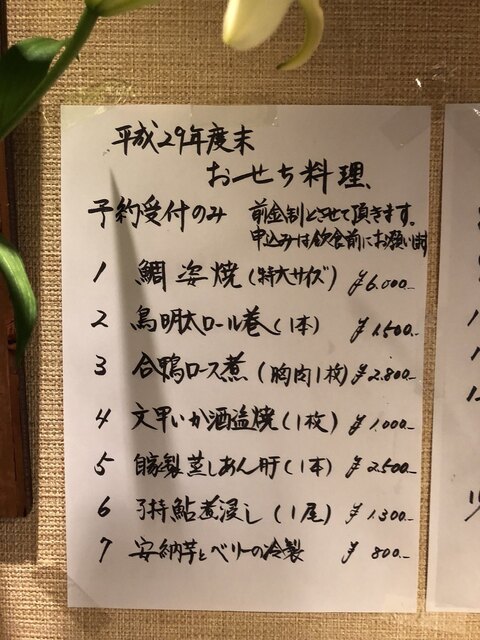 平成29年度末
おせち料理
予約受付のみ 前金制とさせて頂きます。
申込みは飲食前にお願い致します
1 鯛姿焼(特大サイズ) ¥6.000-
2 鳥明太ロール巻(1本) ¥1.500-
3 合鴨ロース煮(胸肉1枚) ¥2.800-
4 文甲いか酒盗焼(1枚) ¥1.000-
5 自家製蒸しあん肝(1本) ¥2.500-
6 子持鮎煮浸し(1尾) ¥1.300-
7 安納芋とベリーの冷製 ¥800-